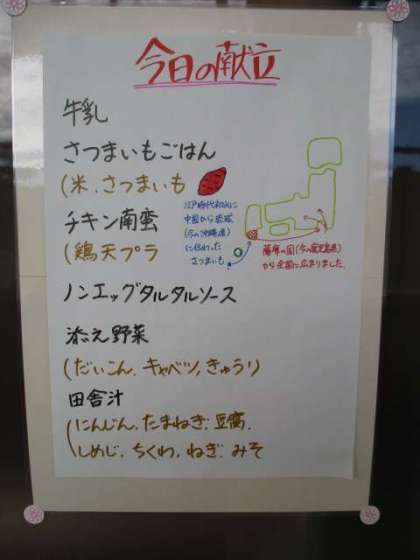 今日の献立
牛乳
さつまいもごはん
(米、さつまいも
江戸時代初めに
中国から琉球
(今の沖縄県)
に伝わった
さつまいも
薩摩の国(今の鹿児島県)
から全国に広まりました
チキン南蛮
(鶏天プラ
ノンエッグタルタルソース
添え野菜
(だいこん、キャベツ、きゅうり)
田舎汁
(にんじん、たまねぎ、豆腐、
しめじ、ちくわ、ねぎ、みそ